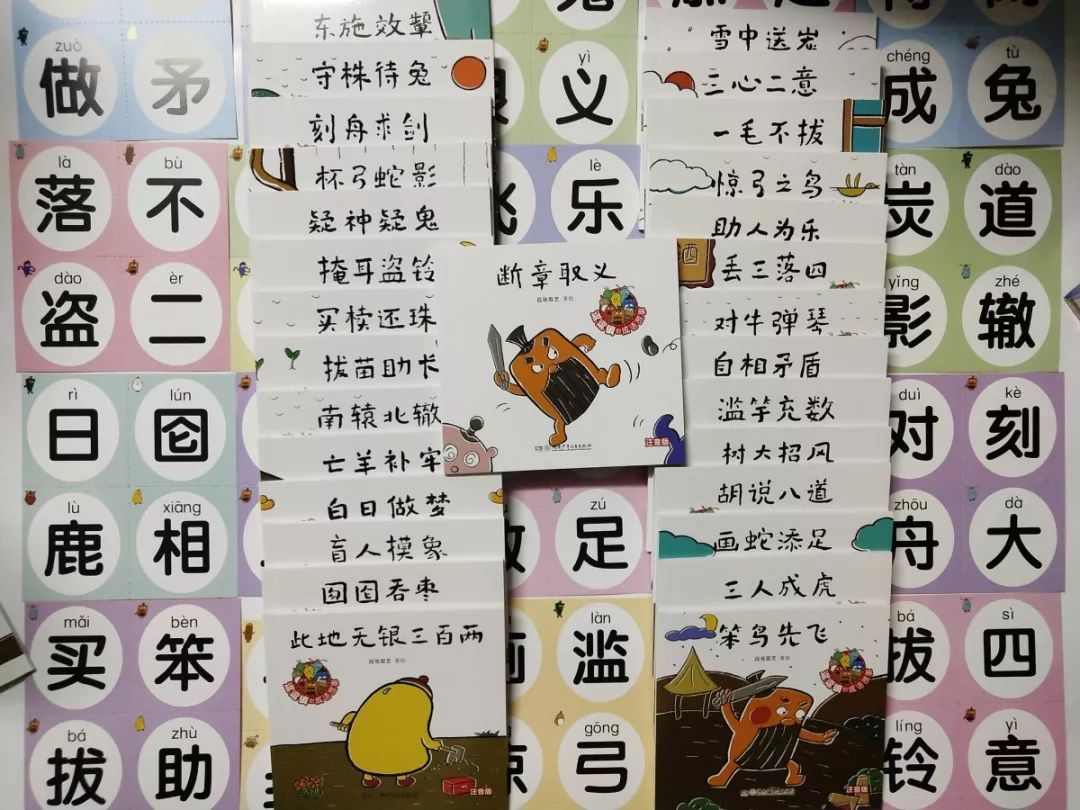 zuò
做 矛
là bù
落 不
dào èr
盗 二
rì lún
日 囵
lù xiāng
鹿 相
mǎi bèn
买 笨
bá zhù
拔 助
东施效颦
守株待兔
刻舟求剑
杯弓蛇影
疑神疑鬼
掩耳盗铃
买椟还珠
拔苗助长
南辕北辙
亡羊补牢
白日做梦
盲人摸象
囫囵吞枣
此地无银三百两
段张取艺 著绘
注音版
yì
义
lè
乐
断章取义
段张取艺 著绘
注音版
zú
足
làn
滥
gōng
弓
雪中送炭
三心二意
一毛不拔
惊弓之鸟
助人为乐
丢三落四
西
对牛弹琴
自相矛盾
滥竽充数
树大招风
胡说八道
画蛇添足
三人成虎
笨鸟先飞
段张取艺 著绘
注音版
chéng tù
成 兔
tàn dào
炭 道
yǐng zhé
影 辙
duì kè
对 刻
zhōu dà
舟 大
bá sì
拔 四
líng yì
铃 意